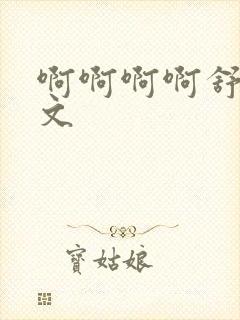 啊啊啊啊舒
文
寶姑娘